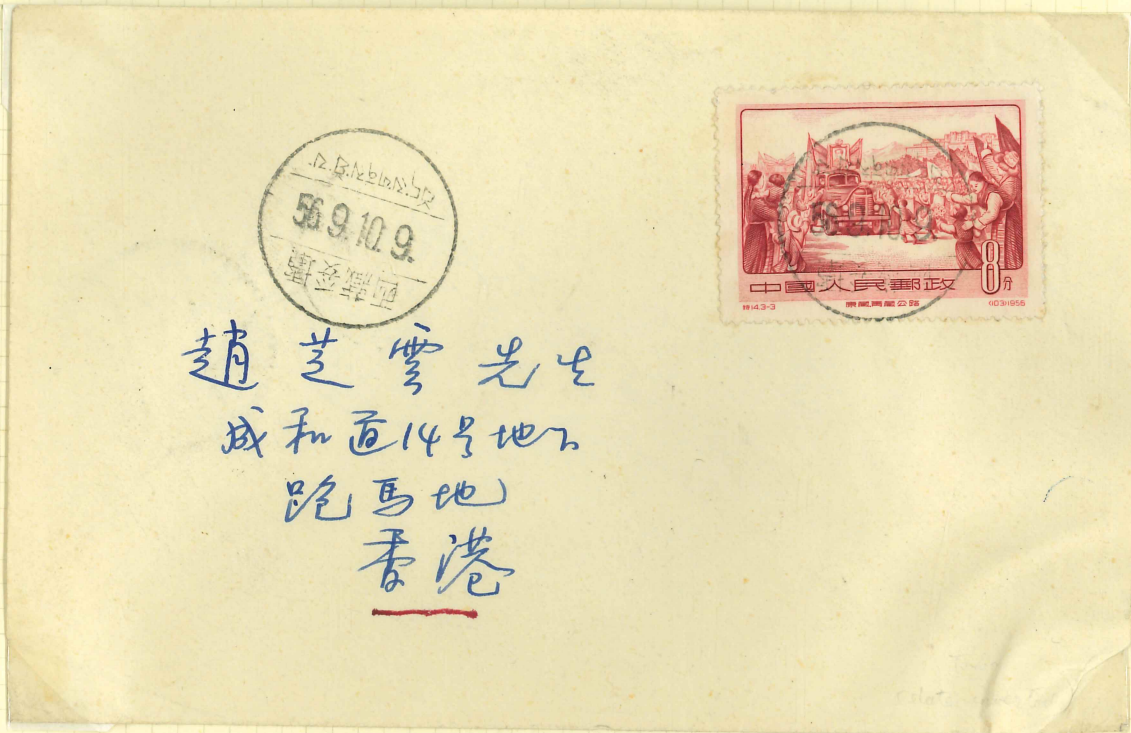 56.9.10.9.
西藏
中國人民郵政
8分
特14.3-3
康藏青藏公路
(103)1956
趙芝雲先生
成和道14号地下
跑馬地
香港